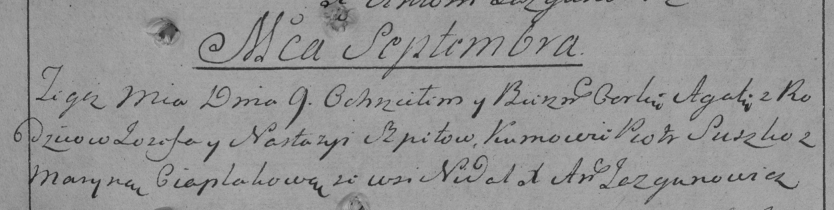 Mca Septembra
Tegoż Mca Dnia 9. Ochrzciłem y Bierzm Corkę Agatę z Ro
dzicow Jozefa y Nastazyi Szpitow, Kumowie Piotr Suszko z
Maryną Ciaplakową ze wsi Nidal X Ant Jazgunowicz